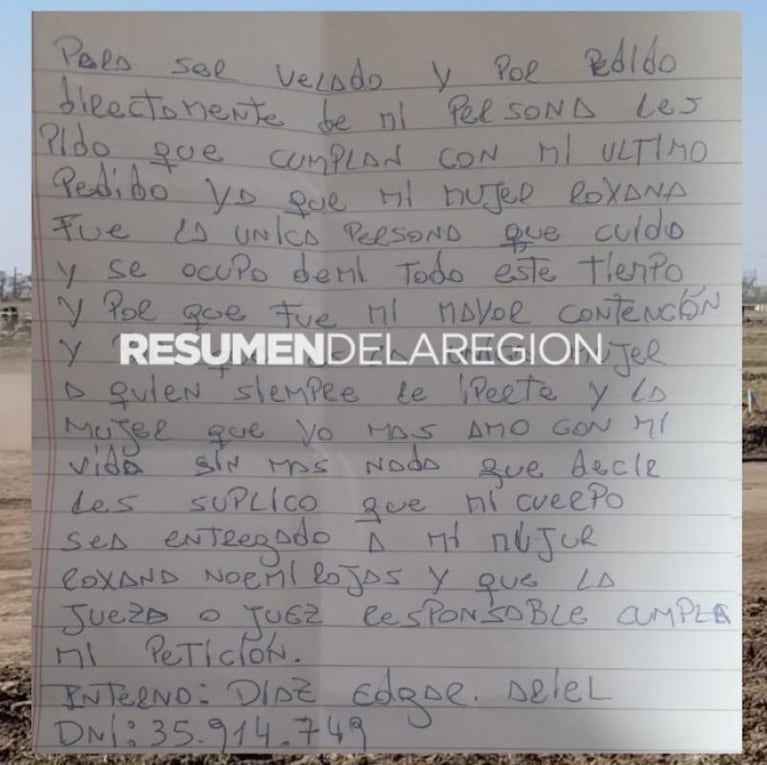 Para ser velado y por pedido
directamente de mi persona les
pido que cumplan con mi ultimo
pedido ya que mi mujer Roxana
fue la unica persona que cuido
y se ocupo demi todo este tiempo
y por que fue mi mayor contención
RESUMENDELAREGION
y mujer
a quien siempre le iperte y la
mujer que yo mas amo con mi
vida sin mas nada que decir
les suplico que mi cuerpo
sea entregado a mi mujur
Roxana Noemi Rojas y que la
jueza o juez responsable cumpla
mi petición.
Interno: Diaz Edgar. Ariel
DNI: 35.914.749